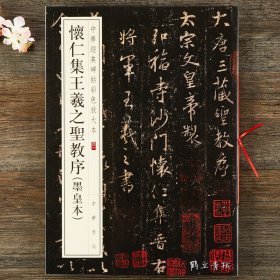 中華經典碑帖彩色放大本
懷仁集王羲之聖教序(墨皇本)
中華書局
大唐三藏聖教序
太宗文皇帝製
和福寺沙門懷仁集晉右
將軍王羲之書
鶴立書林